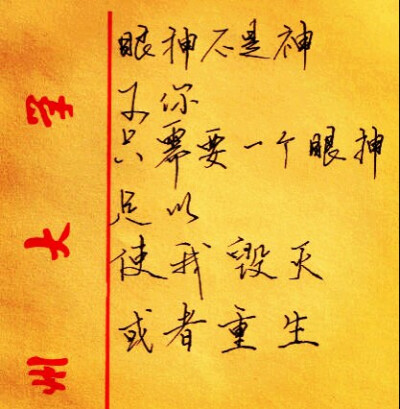 眼神不是神
你
只需要一个眼神
足以
使我毁灭
或者重生
州大学